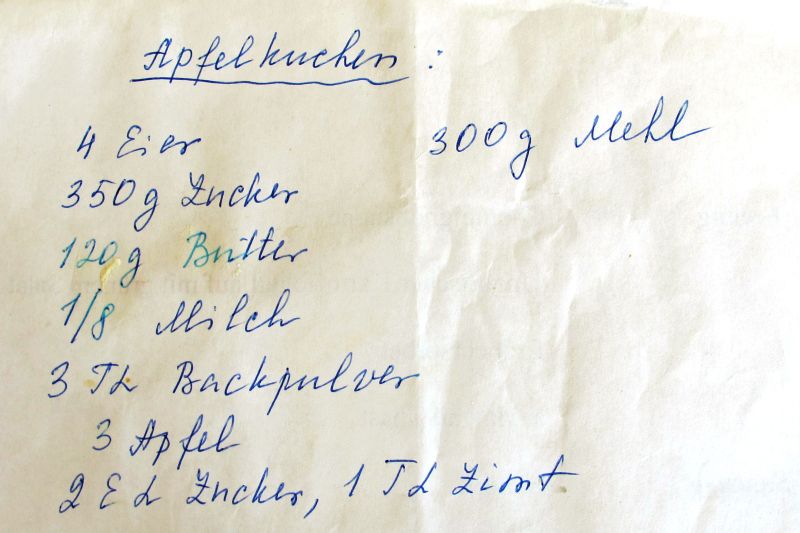 Apfelkuchen :
4 Eier 300g Mehl
350g Zucker
120g Butter
1/8 Milch
3 TL Backpulver
3 Apfel
2 EL Zucker, 1 TL Zimt